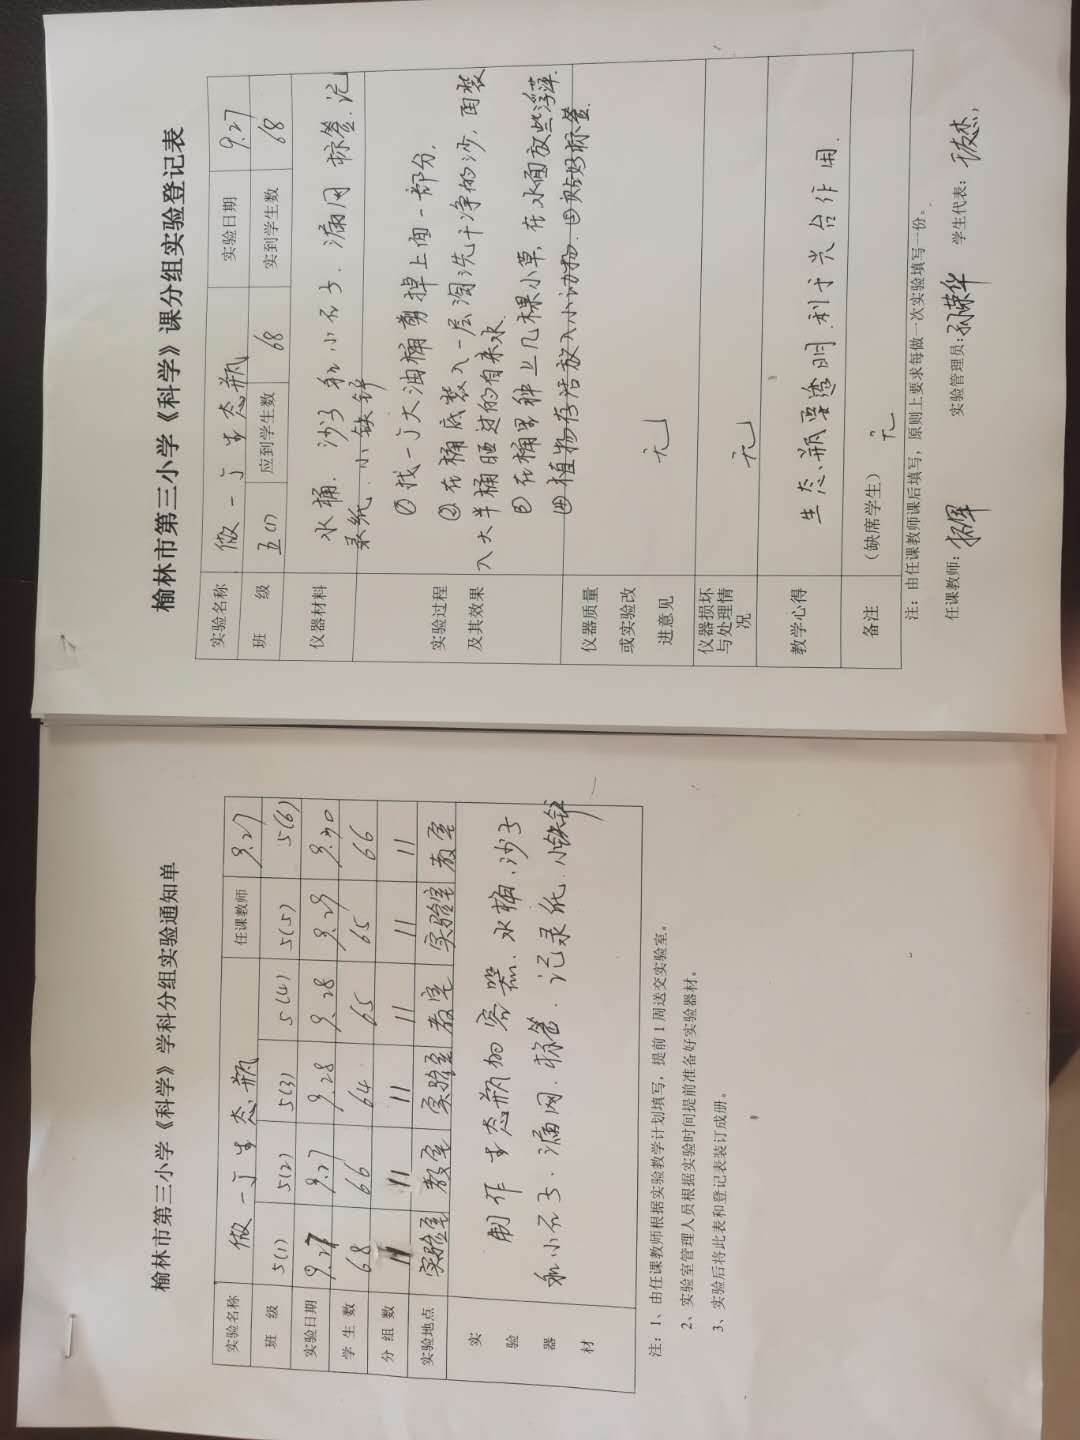 榆林市第三小学《科学》课分组实验登记表
实验名称 做一个生态瓶 实验日期 9.27
班 级 五(1) 应到学生数 68 实到学生数 68
仪器材料 水桶.沙子和小石子.漏网 标签.记
录纸.小铁铲
实验过程
及其效果
①找一个大油桶剪掉上面一部分.
②在桶底装入一层淘洗干净的沙,再装
入大半桶晒过的自来水
③在桶里种上几棵小草,在水面放些浮萍.
④植物存活放入小动物.⑤贴好标签.
仪器质量
或实验改
进意见
无
仪器损坏
与处理情
况
无
教学心得 生态瓶要透明.利于光合作用.
备注 (缺席学生) 无
注:由任课教师课后填写,原则上要求每做一次实验填写一份。
任课教师: 实验管理员:孙荣华 学生代表:
榆林市第三小学《科学》学科分组实验通知单
实验名称 做一个生态瓶 任课教师 9.27
班 级 5(1) 5(2) 5(3) 5(4) 5(5) 5(6)
实验日期 9.27 9.27 9.28 9.28 9.29 9.30
学 生 数 68 66 64 65 65 66
分 组 数 11 11 11 11 11 11
实验地点 实验室 教室 实验室 教室 实验室 教室
实
验
器
材
制作生态瓶的容器.水桶.沙子
和小石子.漏网.标签.记录纸.小铁铲
注:1、由任课教师根据实验教学计划填写,提前1周送交实验室。
2、实验室管理人员根据实验时间提前准备好实验器材。
3、实验后将此表和登记表装订成册。